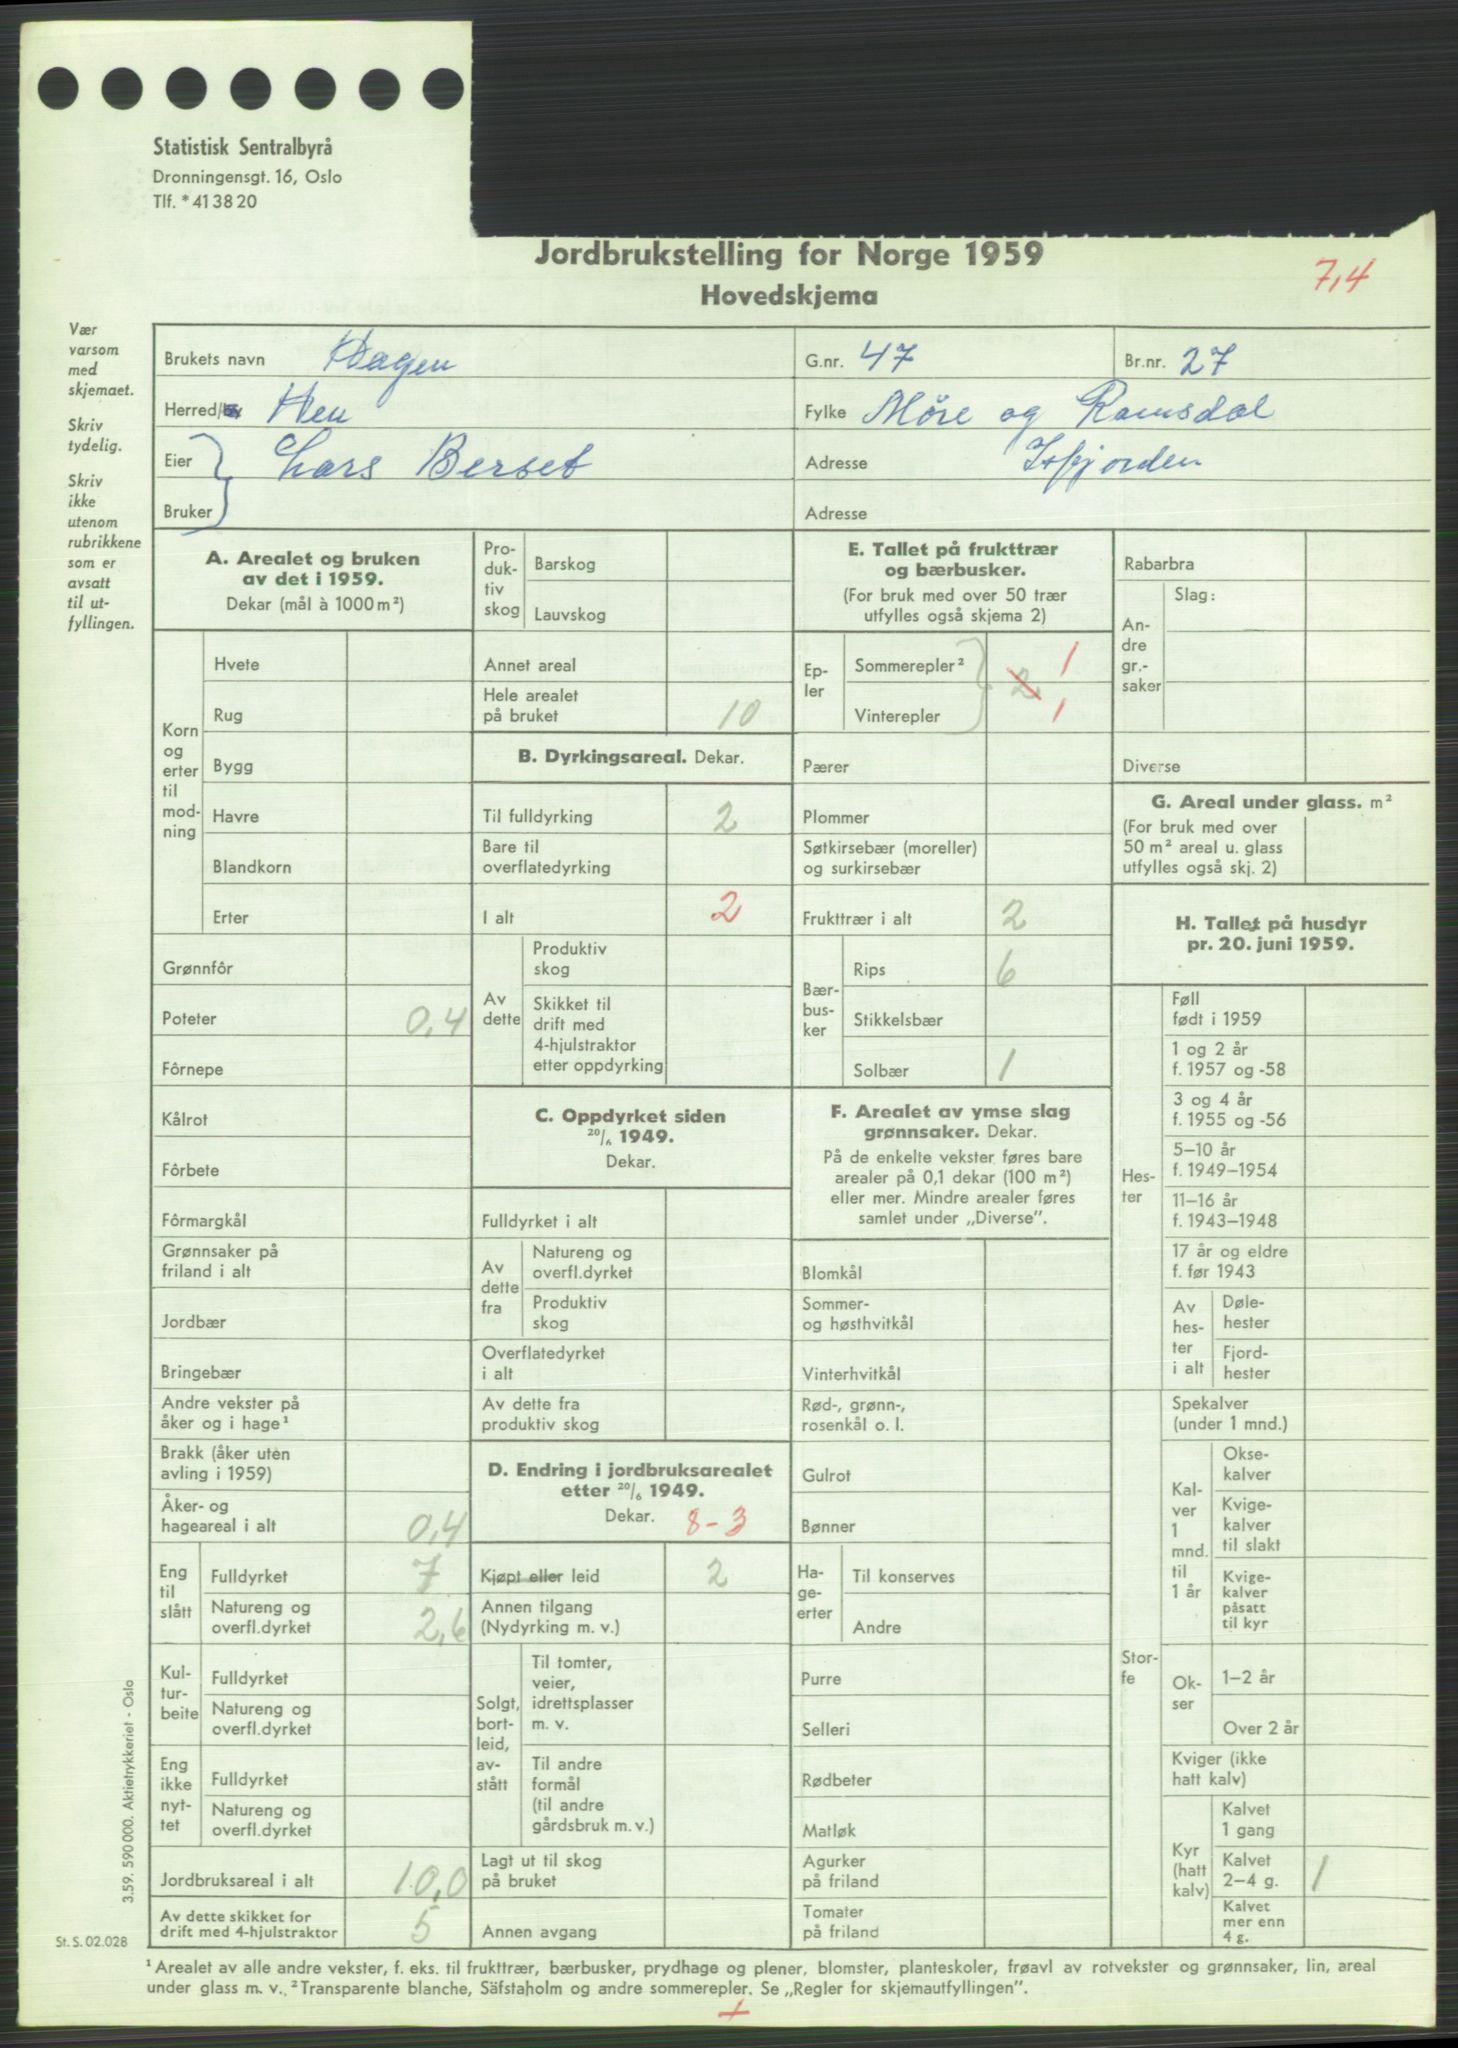 Statistisk Sentralbyrå
Dronningensgt. 16, Oslo
Tlf. * 41 38 20
Jordbrukstelling for Norge 1959
7,4
Hovedskjema
Vær
varsom
med
skjemaet.
Skriv
tydelig.
Skriv
ikke
utenom
rubrikkene
som er
avsatt
til ut-
fyllingen.
Brukets navn Hagen G.nr. 47 Br.nr. 27
Herred/by Hen Fylke Møre og Romsdal
Eier Lars Berset Adresse Isfjorden
Bruker Adresse
A. Arealet og bruken
av det i 1959.
Dekar (mål à 1000 m²)
Korn
og
erter
til
mod-
ning
Hvete
Rug
Bygg
Havre
Blandkorn
Erter
Grønnfôr
Poteter 0,4
Fôrnepe
Kålrot
Fôrbete
Fôrmargkål
Grønnsaker på
friland i alt
Jordbær
Bringebær
Andre vekster på
åker og i hage¹
Brakk (åker uten
avling i 1959)
Åker- og
hageareal i alt 0,4
Eng
til
slått
Fulldyrket 7
Natureng og
overfl.dyrket 2,6
Kul-
tur-
beite
Fulldyrket
Natureng og
overfl.dyrket
Eng
ikke
nyt-
tet
Fulldyrket
Natureng og
overfl.dyrket
Jordbruksareal i alt 10,0
Av dette skikket for
drift med 4-hjulstraktor 5
Pro-
duk-
tiv
skog
Barskog
Lauvskog
Annet areal
Hele arealet
på bruket 10
B. Dyrkingsareal. Dekar.
Til fulldyrking 2
Bare til
overflatedyrking
I alt 2
Av
dette
Produktiv
skog
Skikket til
drift med
4-hjulstraktor
etter oppdyrking
C. Oppdyrket siden
20/6 1949.
Dekar.
Fulldyrket i alt
Av
dette
fra
Natureng og
overfl.dyrket
Produktiv
skog
Overflatedyrket
i alt
Av dette fra
produktiv skog
D. Endring i jordbruksarealet
etter 20/6 1949.
Dekar. 8-3
Kjøpt eller leid 2
Annen tilgang
(Nydyrking m. v.)
Solgt,
bort-
leid,
av-
stått
Til tomter,
veier,
idrettsplasser
m. v.
Til andre
formål
(til andre
gårdsbruk m. v.)
Lagt ut til skog
på bruket
Annen avgang
E. Tallet på frukttrær
og bærbusker.
(For bruk med over 50 trær
utfylles også skjema 2)
Ep-
ler
Sommerepler² 1
2
Vinterepler 1
Pærer
Plommer
Søtkirsebær (moreller)
og surkirsebær
Frukttrær i alt 2
Bær-
bus-
ker
Rips 6
Stikkelsbær
Solbær 1
F. Arealet av ymse slag
grønnsaker. Dekar.
På de enkelte vekster føres bare
arealer på 0,1 dekar (100 m²)
eller mer. Mindre arealer føres
samlet under „Diverse”.
Blomkål
Sommer-
og høsthvitkål
Vinterhvitkål
Rød-, grønn-,
rosenkål o. l.
Gulrot
Bønner
Ha-
ge-
erter
Til konserves
Andre
Purre
Selleri
Rødbeter
Matløk
Agurker
på friland
Tomater
på friland
Rabarbra
An-
dre
gr.-
saker
Slag:
Diverse
G. Areal under glass. m²
(For bruk med over
50 m² areal u. glass
utfylles også skj. 2)
H. Tallet på husdyr
pr. 20. juni 1959.
Hes-
ter
Føll
født i 1959
1 og 2 år
f. 1957 og -58
3 og 4 år
f. 1955 og -56
5–10 år
f. 1949–1954
11–16 år
f. 1943–1948
17 år og eldre
f. før 1943
Av
hes-
ter
i alt
Døle-
hester
Fjord-
hester
Stor-
fe
Spekalver
(under 1 mnd.)
Kal-
ver
1
mnd.
til
1 år
Okse-
kalver
Kvige-
kalver
til slakt
Kvige-
kalver
påsatt
til kyr
Ok-
ser
1–2 år
Over 2 år
Kviger (ikke
hatt kalv)
Kyr
(hatt
kalv)
Kalvet
1 gang
Kalvet
2–4 g. 1
Kalvet
mer enn
4 g.
3.59. 590 000. Aktietrykkeriet - Oslo
St. S. 02.028
¹ Arealet av alle andre vekster, f. eks. til frukttrær, bærbusker, prydhage og plener, blomster, planteskoler, frøavl av rotvekster og grønnsaker, lin, areal
under glass m. v. ² Transparente blanche, Säfstaholm og andre sommerepler. Se „Regler for skjemautfyllingen”.
+